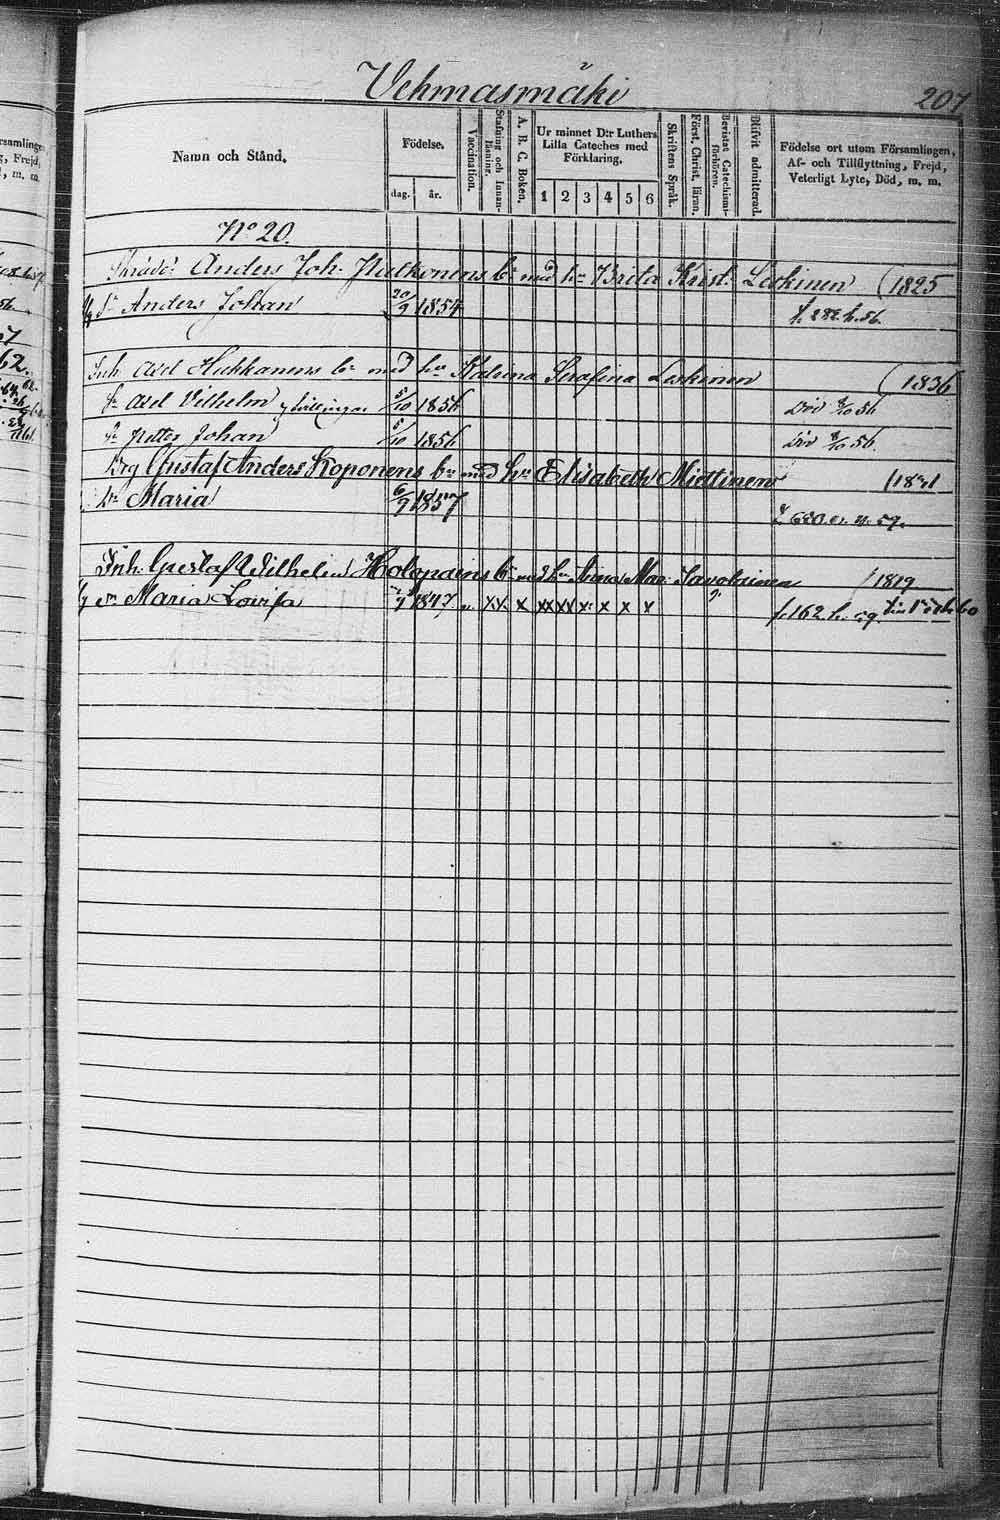 Vehmasmäki 207
Namn och Stånd.
Födelse.
dag. år.
Vaccination.
Stafning och Innanläsning.
A. B. C. Boken.
Ur minnet D:r Luthers Lilla Cateches med Förklaring.
1 2 3 4 5 6
Skriftens Språk.
Först. Christ. läran.
Bevistat Catechismiförhören.
Blifvit admitterad.
Födelse ort utom Församlingen, Af- och Tillflyttning, Frejd, Veterligt Lyte, Död, m. m.
No 20.
Anders Joh. br med hu Brita Krist: Leskinen (1825
Sn Anders Johan 20/9 1854 f. 282. h. 56.
Inh Axel Hukkanens br med hu Katrina Serafina Leskinen (1836
Sn Axel Vilhelm 5/10 1856 Död 56
Sn Petter Johan 5/10 1856 Död 56.
Gustaf Anders Koponens br med hu Elisabeth Miettinen
Dr Maria 6/9 1857 57.
Inh: Gustaf Wilhelm Holopainens br med hu Anna Mar: Savolainen 1819
Maria Lovisa 1847 xx x xx xx x x x x f. 162. h. 60